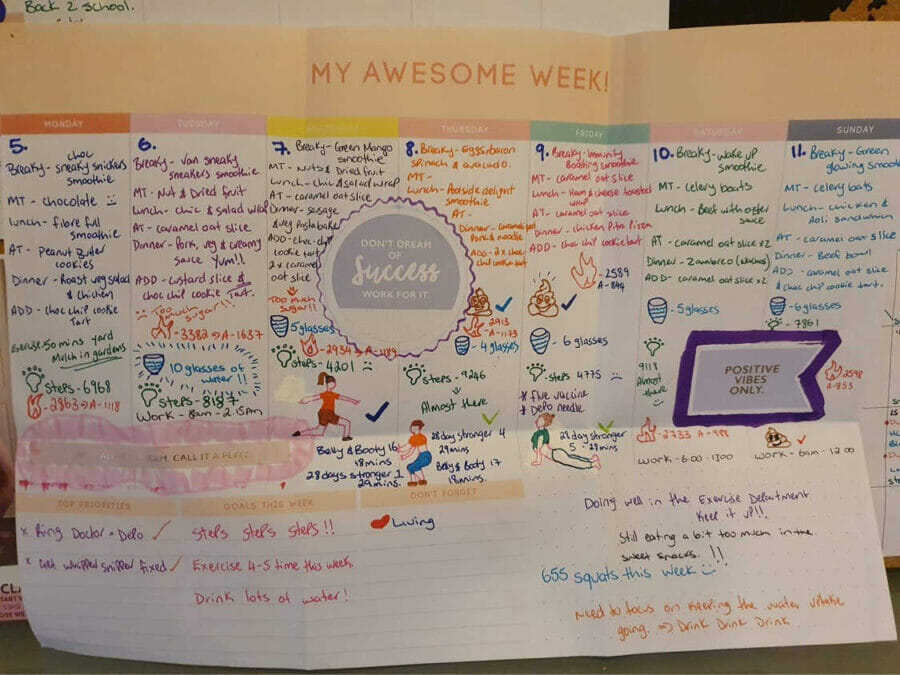 Back 2 school.
MY AWESOME WEEK!
MONDAY
5.
choc
Breaky - sneaky snickers
smoothie
MT - chocolate
Lunch - fibre full
smoothie
AT - Peanut Butter
cookies
Dinner - Roast veg salad
& chicken
ADD - choc chip cookie
Tart
Exercise: 50 mins yard
Mulch in gardens
Steps - 6968
2863 → A-1118
TUESDAY
6.
Breaky - van sneaky
sneakers smoothie
MT - Nut & Dried fruit
Lunch - chic & salad wrap
AT - caramel oat slice
Dinner - Pork, veg & creamy
sauce Yum!!
ADD - custard slice &
choc chip cookie Tart.
Too much
sugar!!
3382 → A-1637
10 glasses of
water!!
Steps - 8187
Work - 8am - 2.15pm
7.
Breaky - Green Mango
smoothie
MT - Nuts & Dried fruit
Lunch - chic & salad wrap
AT - caramel oat slice
Dinner - sausage
& veg pasta bake
ADD - choc chip
cookie tart
2 x caramel
oat slice
Too much
sugar!!
5 glasses
2934 → A-1189
Steps - 4201
Belly & Booty 16
18mins
28 days stronger 1
29mins.
THURSDAY
8.
Breaky - Eggs, bacon
spinach & avacado.
MT -
Lunch - Poolside delight
smoothie
AT -
Dinner - Caramel
Pork & noodle
ADD - 2 x choc
chip cookie tart
2913
A-1173
- 4 glasses
Steps - 9246
Almost there
28 day stronger 4
29 mins
Belly & Booty 17
18mins.
FRIDAY
9.
Breaky - Immunity
Boosting smoothie
MT - caramel oat slice
Lunch - Ham & cheese toasted
wrap
AT - caramel oat slice
Dinner - chicken Pita Pizza
ADD - choc chip cookie tart
2589
A-844
- 6 glasses
- steps 4775
* flue vaccine
* Depo needle
28 day stronger
5 - 28 mins
SATURDAY
10.
Breaky - wake up
smoothie
MT - celery boats
Lunch - Beef with oyster
sauce
AT - caramel oat slice x2
Dinner - Zambrero (nachos)
ADD - caramel oat slice x2
- 5 glasses
9118
Almost
there
- 2733 A-988
Work - 6.00 - 1300
SUNDAY
11.
Breaky - Green
glowing smoothie
MT - celery boats
Lunch - chicken &
Aoli sandwhich
AT - caramel oat slice
Dinner - Beef bowl
ADD - caramel oat slice
& choc chip cookie tart.
- 6 glasses
- 7861
2598
A-853
Work - 6am - 12.00
DON'T DREAM
OF
Success
WORK FOR IT.
POSITIVE
VIBES
ONLY.
CALL IT A PLAN
TOP PRIORITIES
x Ring Doctor - Depo
x Get whipper snipper fixed
GOALS THIS WEEK
Steps steps steps!!
Exercise 4-5 time this week.
Drink lots of water!
DON'T FORGET
Living
Doing well in the Exercise Department
Keep it up!!!
Still eating a bit too much in the
sweet snacks. !!
655 squats this week
Need to focus on keeping the water uptake
going. ⇒ Drink Drink Drink